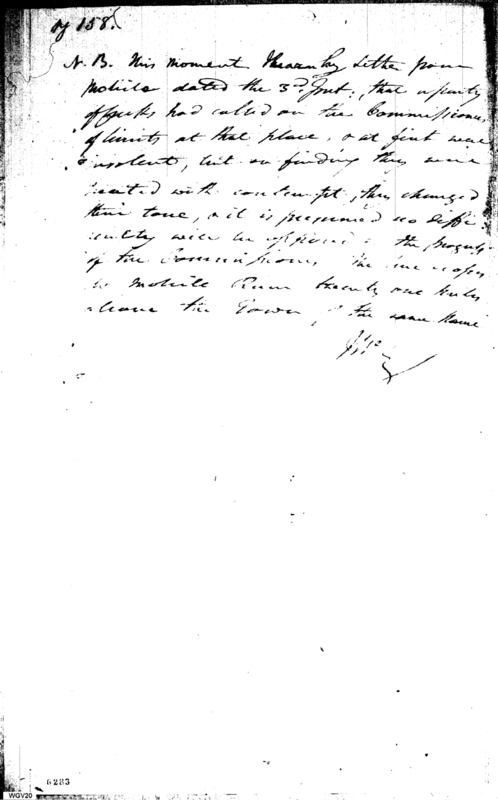 of 158.
N. B. This moment I learn by Letter from
Mobile dated the 3rd. Inst:, that a party
of Creeks had called on the Commissioners
of limits at that place, & at first were
insolent, but on finding they were
treated with contempt, they changed
their tone, & it is presumed no diffi-
culty will be opposed to the progress
of the Commissioners. The line crosses
the Mobile River twenty one miles
above the Town, of the same Name
6283
WGV20